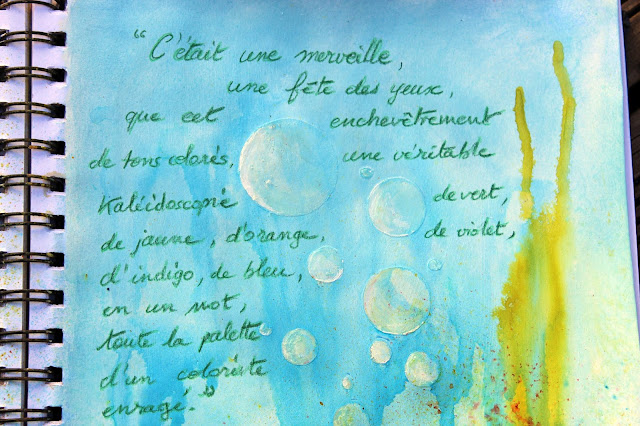 “ C'était une merveille,
une fête des yeux,
que cet enchevêtrement
de tons colorés, une véritable
Kaléidoscope de vert,
de jaune, d'orange, de violet,
d'indigo, de bleu,
en un mot,
toute la palette
d'un coloriste
enragé. ”